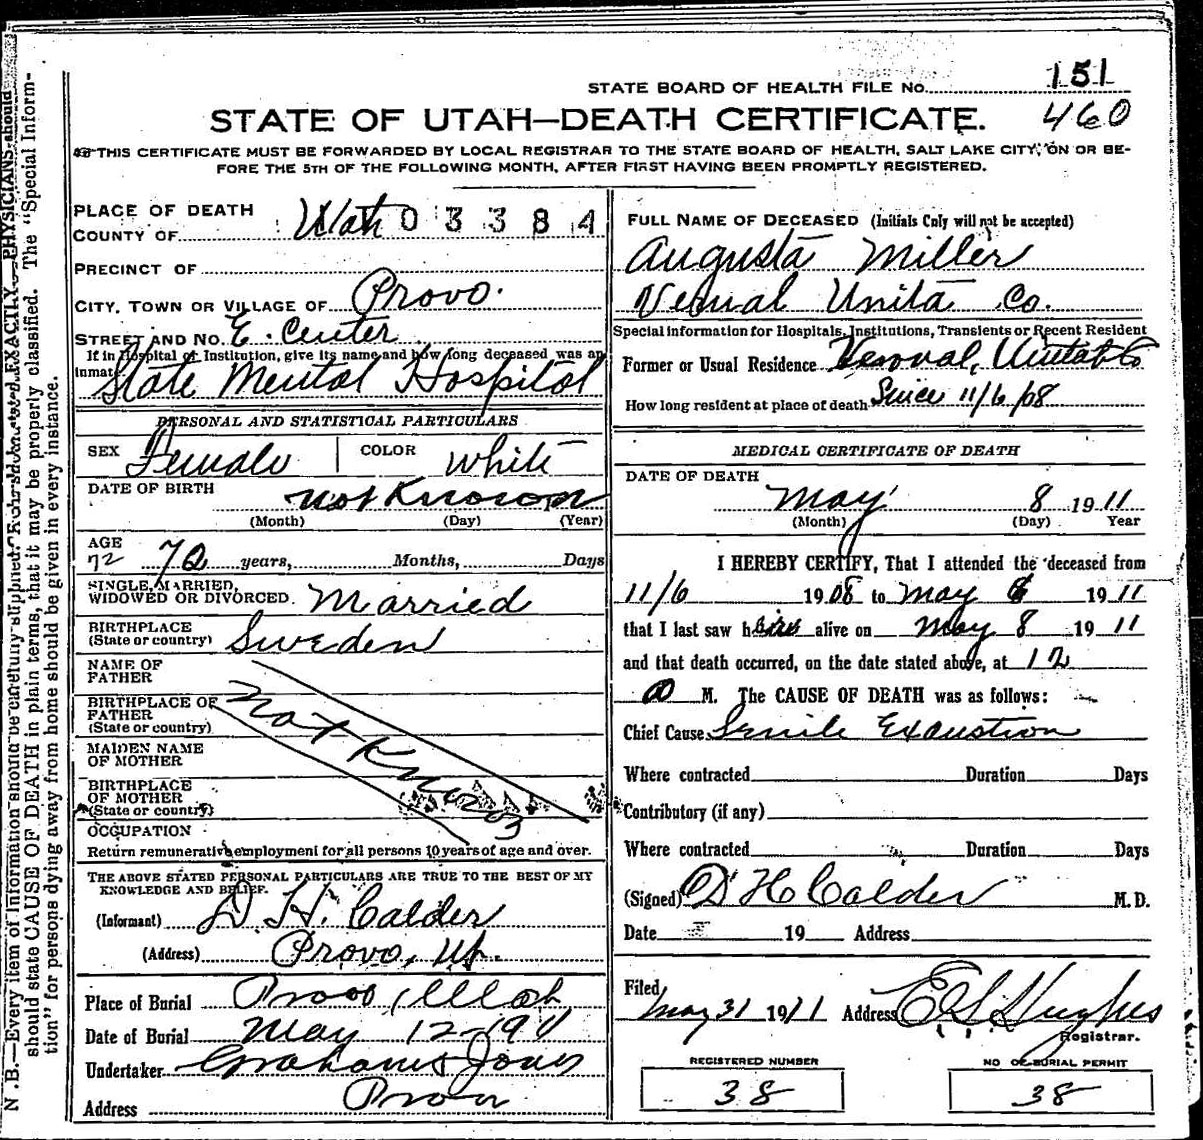 STATE BOARD OF HEALTH FILE No. 151
460
STATE OF UTAH—DEATH CERTIFICATE.
THIS CERTIFICATE MUST BE FORWARDED BY LOCAL REGISTRAR TO THE STATE BOARD OF HEALTH, SALT LAKE CITY, ON OR BE-
FORE THE 5TH OF THE FOLLOWING MONTH, AFTER FIRST HAVING BEEN PROMPTLY REGISTERED.
PLACE OF DEATH
COUNTY OF Utah 03384
PRECINCT OF
CITY, TOWN OR VILLAGE OF Provo.
STREET AND NO. E. Center
If in Hospital or Institution, give its name and how long deceased was an
inmate
State Mental Hospital
PERSONAL AND STATISTICAL PARTICULARS
SEX Female COLOR White
DATE OF BIRTH not Known
(Month) (Day) (Year)
AGE
72 72 years, Months, Days
SINGLE, MARRIED,
WIDOWED OR DIVORCED. Married
BIRTHPLACE
(State or country) Sweden
NAME OF
FATHER
BIRTHPLACE OF
FATHER
(State or country)
Not Known
MAIDEN NAME
OF MOTHER
BIRTHPLACE
OF MOTHER
(State or country)
OCCUPATION
Return remunerative employment for all persons 10 years of age and over.
THE ABOVE STATED PERSONAL PARTICULARS ARE TRUE TO THE BEST OF MY
KNOWLEDGE AND BELIEF.
(Informant) D. H. Calder
(Address) Provo, Ut.
Place of Burial Provo, Utah
Date of Burial May 12-1911
Undertaker Grahams Jones
Address Provo
FULL NAME OF DECEASED (Initials Only will not be accepted)
Augusta Miller
Vernal Unita Co.
Special information for Hospitals, Institutions, Transients or Recent Resident
Former or Usual Residence Vernal, Uintah Co
How long resident at place of death Since 11/6/08
MEDICAL CERTIFICATE OF DEATH
DATE OF DEATH
May 8 1911
(Month) (Day) Year
I HEREBY CERTIFY, That I attended the deceased from
11/6 1908 to May 1911
that I last saw h alive on May 8 1911
and that death occurred, on the date stated above, at 12
M. The CAUSE OF DEATH was as follows:
Chief Cause Senile Exaustion
Where contracted Duration Days
Contributory (if any)
Where contracted Duration Days
(Signed) D H Calder M.D.
Date 19 Address
Filed
May 31 1911 Address E S Hughes
Registrar.
REGISTERED NUMBER
38
NO OF BURIAL PERMIT
38
N. B.—Every item of information should be carefully supplied. AGE should be stated EXACTLY. PHYSICIANS should
should state CAUSE OF DEATH in plain terms, that it may be properly classified. The "Special Inform-
tion" for persons dying away from home should be given in every instance.